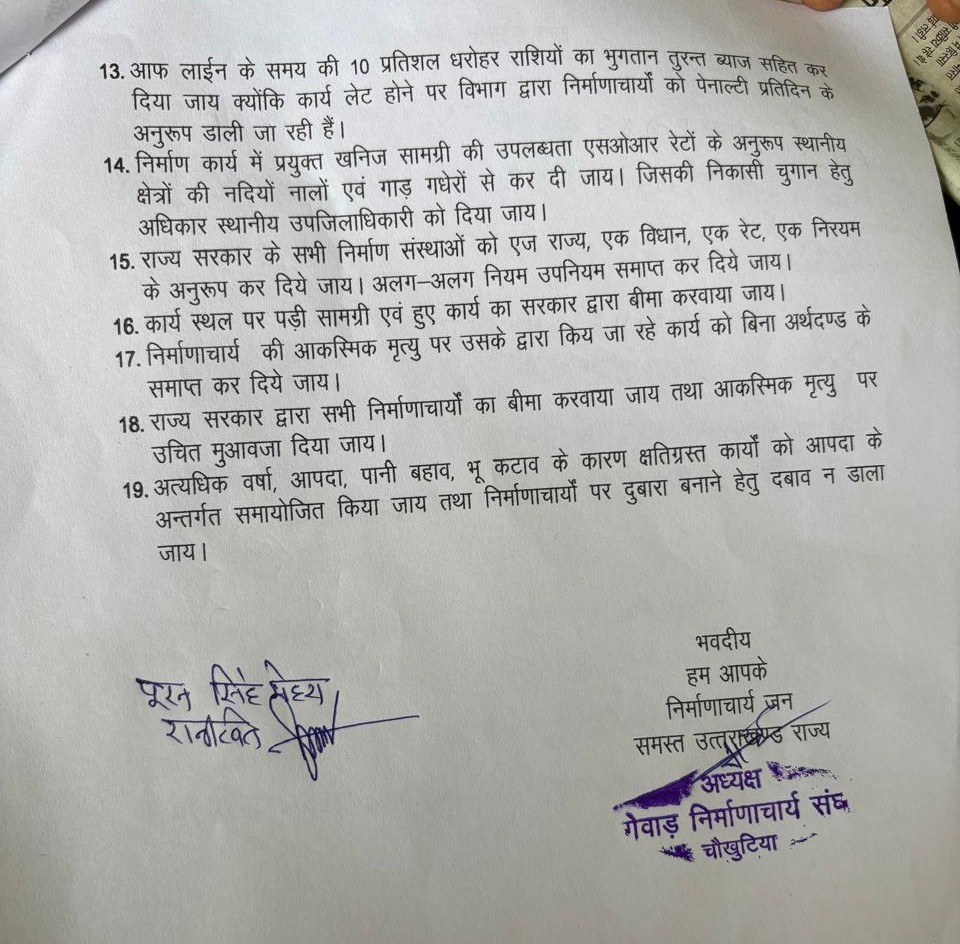 13. आफ लाईन के समय की 10 प्रतिशल धरोहर राशियों का भुगतान तुरन्त ब्याज सहित कर
दिया जाय क्योंकि कार्य लेट होने पर विभाग द्वारा निर्माणाचार्यों को पेनाल्टी प्रतिदिन के
अनुरूप डाली जा रही हैं।
14. निर्माण कार्य में प्रयुक्त खनिज सामग्री की उपलब्धता एसओआर रेटों के अनुरूप स्थानीय
क्षेत्रों की नदियों नालों एवं गाड़ गधेरों से कर दी जाय। जिसकी निकासी चुगान हेतु
अधिकार स्थानीय उपजिलाधिकारी को दिया जाय।
15. राज्य सरकार के सभी निर्माण संस्थाओं को एज राज्य, एक विधान, एक रेट, एक निरयम
के अनुरूप कर दिये जाय। अलग-अलग नियम उपनियम समाप्त कर दिये जाय।
16. कार्य स्थल पर पड़ी सामग्री एवं हुए कार्य का सरकार द्वारा बीमा करवाया जाय।
17. निर्माणाचार्य की आकस्मिक मृत्यु पर उसके द्वारा किय जा रहे कार्य को बिना अर्थदण्ड के
समाप्त कर दिये जाय।
18. राज्य सरकार द्वारा सभी निर्माणाचार्यों का बीमा करवाया जाय तथा आकस्मिक मृत्यु पर
उचित मुआवजा दिया जाय।
19. अत्यधिक वर्षा, आपदा, पानी बहाव, भू कटाव के कारण क्षतिग्रस्त कार्यों को आपदा के
अन्तर्गत समायोजित किया जाय तथा निर्माणाचार्यों पर दुबारा बनाने हेतु दबाव न डाला
जाय।
भवदीय
हम आपके
निर्माणाचार्य जन
समस्त उत्तराखण्ड राज्य
अध्यक्ष
गेवाड़ निर्माणाचार्य संघ
चौखुटिया
पूरन सिंह